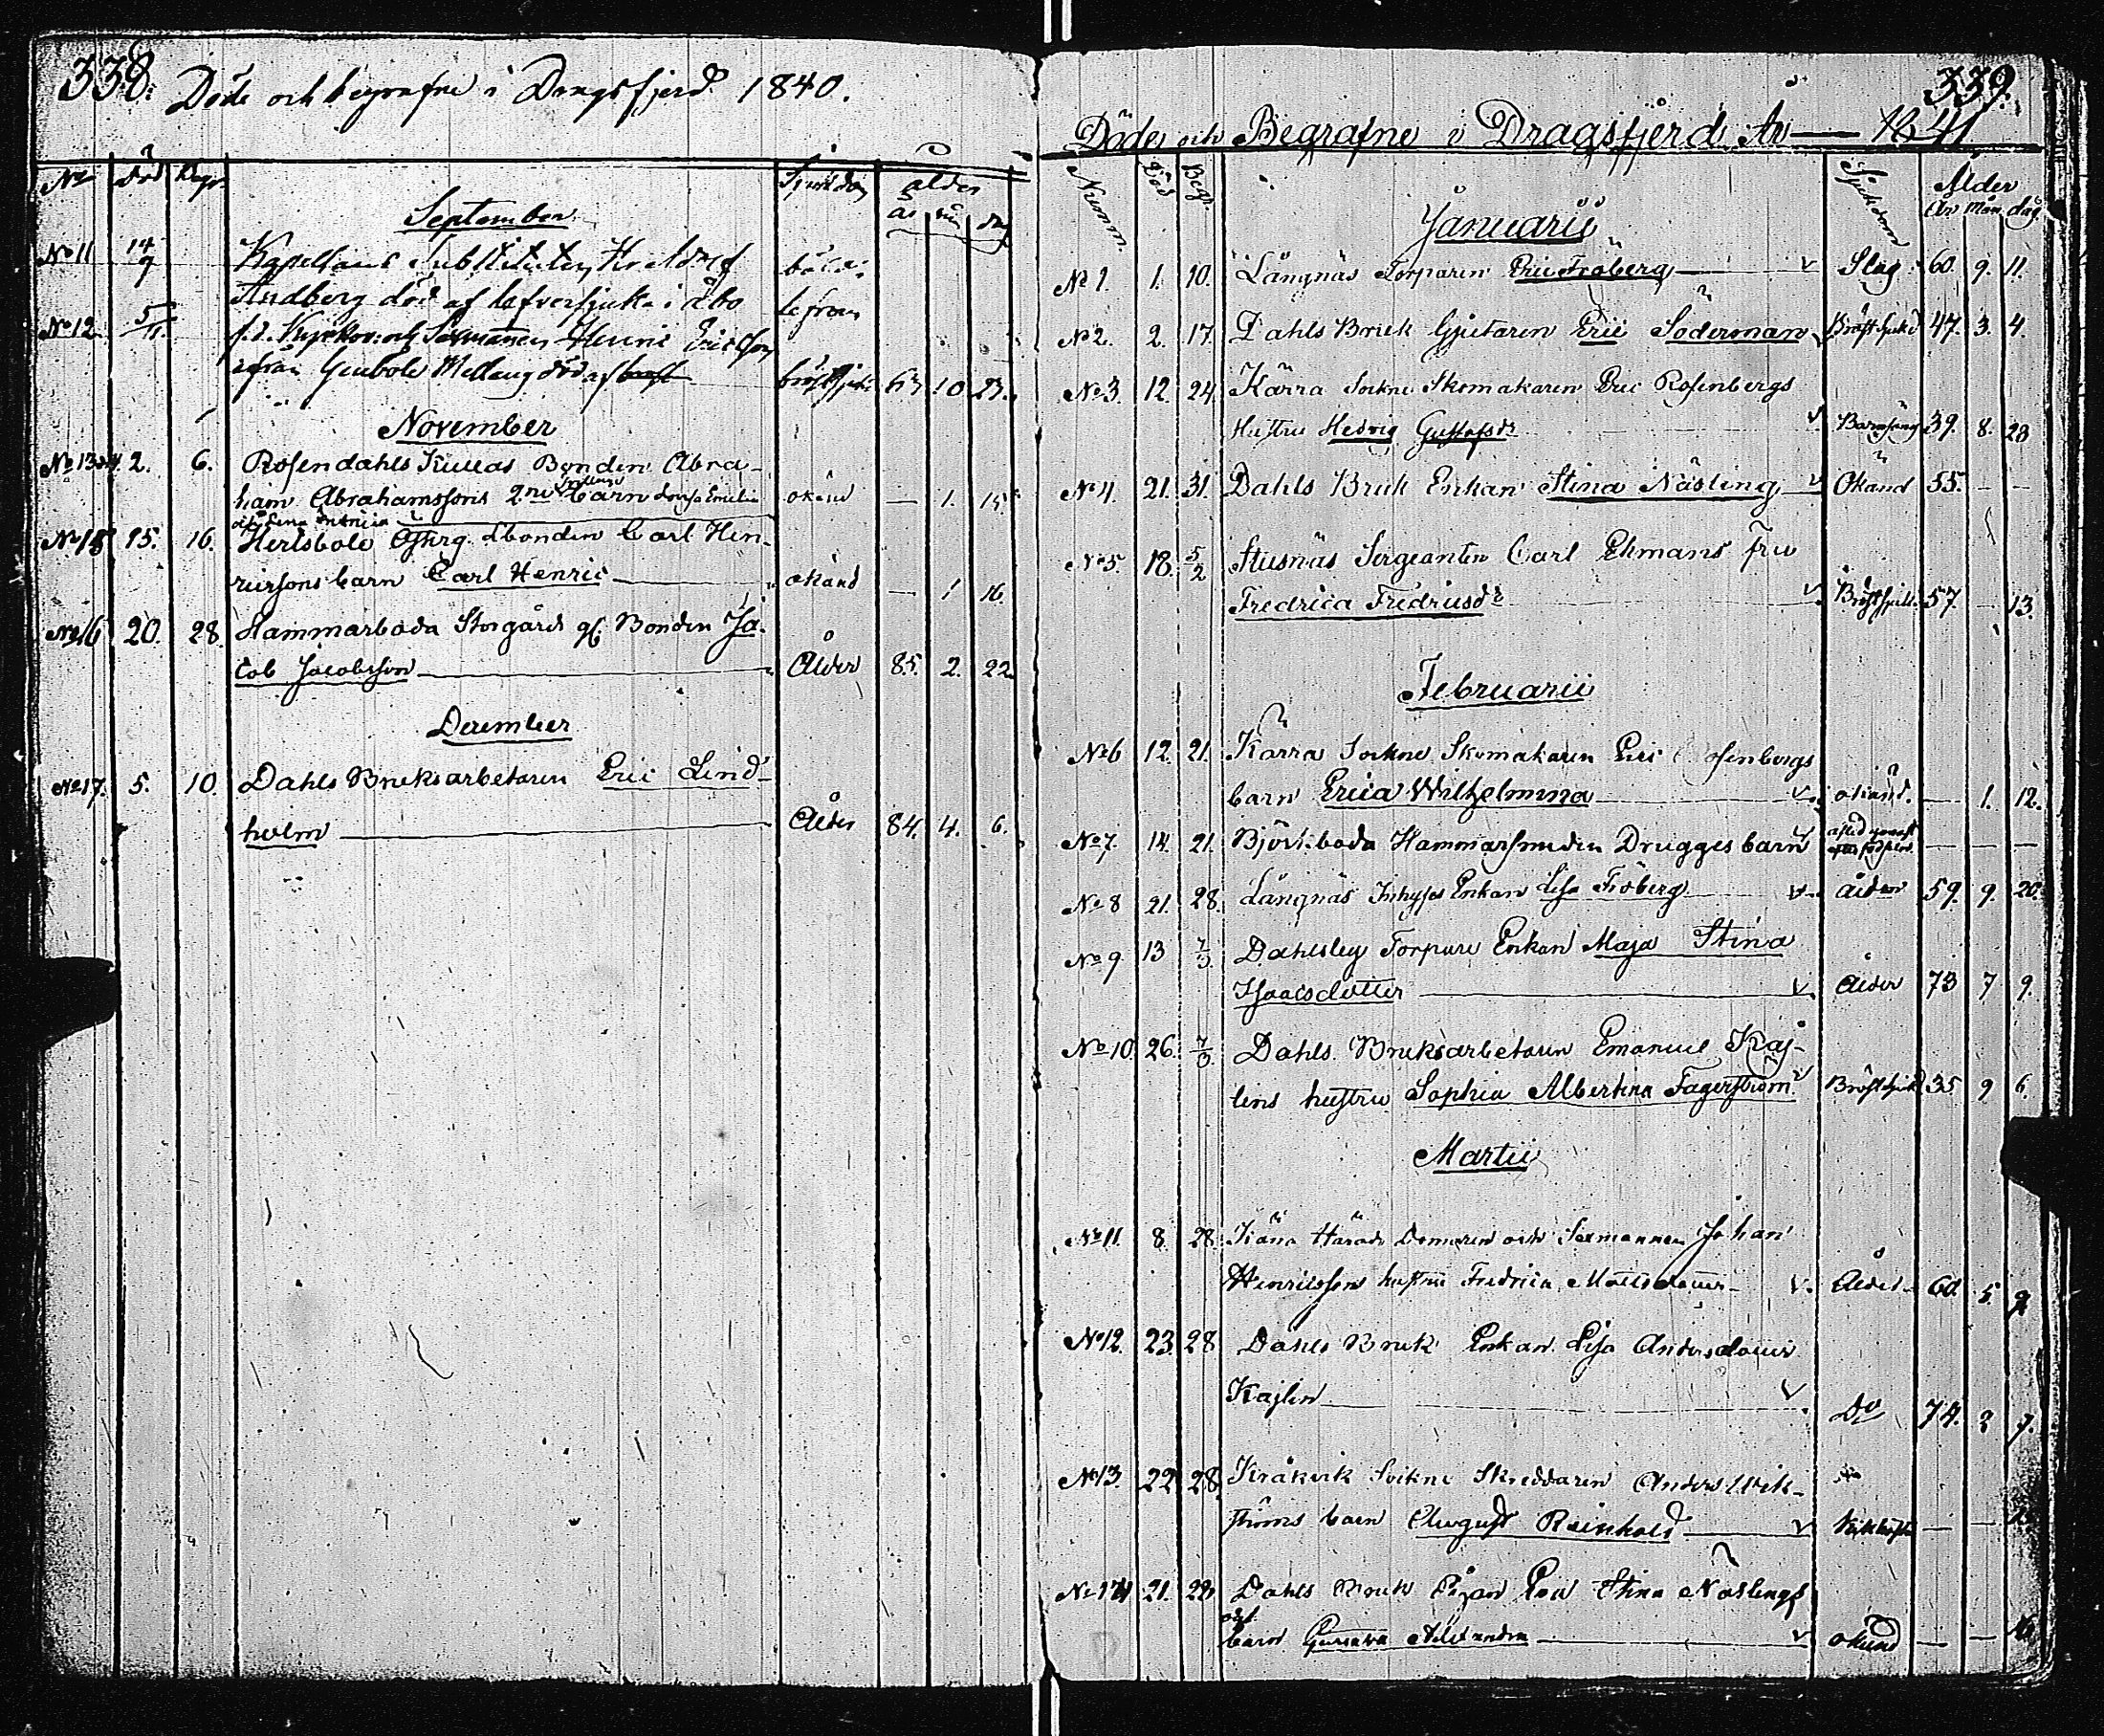 338.
Döde och begrafne i Dragsfjerd 1840.
No Död Begr. Sjukdom ålder
år mn dag
September
No 11 14/9 Kapellans Substituten
Lindberg död af lefversjuka i åbo
No 12. 5/11. f.d. och Sexmannen Henric Ericsson
ifrån Genböle Mellang död af bröst bröstsjuk 63 10 23.
November
No 13 2. 6. Rosendahls Kullas Bonden Abra-
ham Abrahamssons 2ne barn Lovisa Emilia okänd — 1. 15
No 15 15. 16. Hertsböle Bonden Carl Hen-
ricssons barn Carl Henric okänd — 1 16.
No 16 20. 28. Hammarboda Storgård Bonden Ja-
cob Jacobsson Ålder 85. 2. 22.
December
No 17. 5. 10. Dahls Bruksarbetaren Eric Lind-
holm Ålder 84. 4. 6.
339.
Döde och Begrafne i Dragsfjerd År 1841
Numm. Död Begr. Sjukdom Ålder
År Mån dag.
Januarii
No 1. 1. 10. Långnäs Torparen Eric Fröberg Slag 60. 9. 11.
No 2. 2. 17. Dahls Bruk Gjutaren Eric Söderman Bröstsjukd 47. 3. 4.
No 3. 12. 24. Kärra Sockne Skomakaren Eric Rosenbergs
Hustru Hedvig Gustafsdr Barnsäng 39. 8. 28
No 4. 21. 31. Dahls Bruk Enkan Stina Näsling Okänd 55. — —
No 5. 18. 5/2 Stusnäs Sergeanten Carl Ekmans fru
Fredrica Fredricsdr Bröstsjukd 57. — 13.
Februarii
No 6 12. 21. Kärra Sockne Skomakaren Eric Rosenbergs
barn Erica Wilhelmina okänd. — 1. 12.
No 7. 14. 21. Björkboda Hammarsmeden Drugges barn — — —
No 8 21. 28. Långnäs Inhyses Enkan Lisa Fröberg ålder 59. 9. 20.
No 9 13 7/3. Dahlsby Torpare Enkan Maja Stina
Isaacsdotter Ålder 73 7 9.
No 10 26. 7/3. Dahls Bruksarbetaren Emanuel Kaj-
lins hustru Sophia Albertina Fagerström Bröstsjukd 35 9 6.
Martii
No 11. 8. 28. Härads Domaren och Sexmannen Johan
Henricssons hustru Fredrica Matsdotter Ålder 60. 5. 9
No 12. 23. 28 Dahls Bruk Enkan Lisa Andersdotter
Kajlin Do 74. 2 7.
No 13. 22 28 Kråkvik Sockne Skreddaren Anders Wik-
ströms barn August Reinhold Kikhosta — —
No 14 21. 28 Dahls Bruk Pigan Eva Stina Näslings
oä. barn Gustava Alexandra okänd — — 16